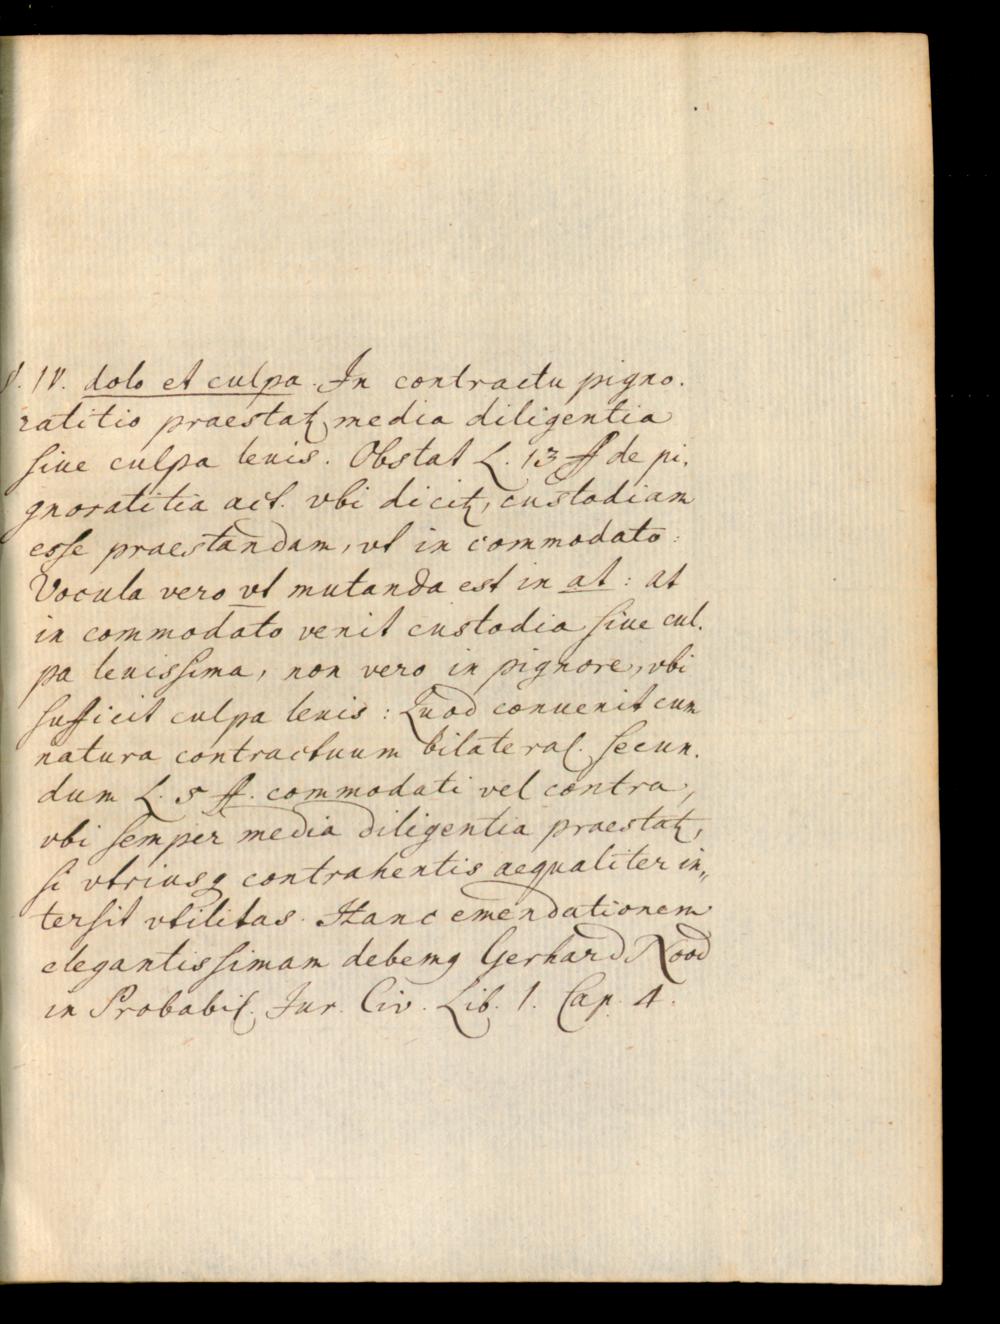 §. IV. dolo et culpa. In contractu pigno-
ratitio praestatr media diligentia
siue culpa leuis. Obstat L. 13 ff de pi-
gnoratitia act. vbi dicitr, custodiam
esse praestandam, vt in commodato:
Vocula vero vt mutanda est in at: at
in commodato venit custodia siue cul-
pa leuissima, non vero in pignore, vbi
sufficit culpa leuis: Quod conuenit cum
natura contractuum bilateral. secun-
dum L. 5 ff. commodati vel contra,
vbi semper media diligentia praestatr,
si vtriusq contrahentis aequaliter in„
tersit vtilitas. Hanc emendationem
elegantissimam debemq Gerhard Nood
in Probabil. Jur. Civ. Lib. 1. Cap. 4.